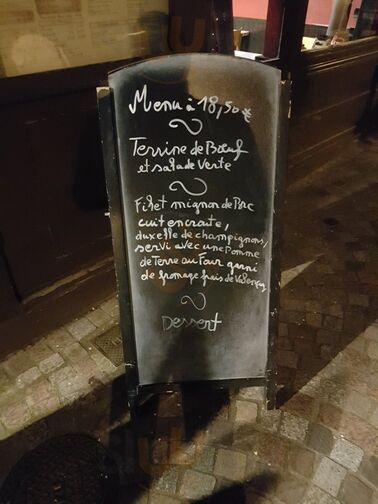 Menu à 18,50 €
Terrine de Bœuf
et salade Verte
Filet mignon de Porc
cuit en croute,
duxelle de champignons,
servi avec une Pomme
de Terre au Four garni
de fromage frais de Valençay
Dessert